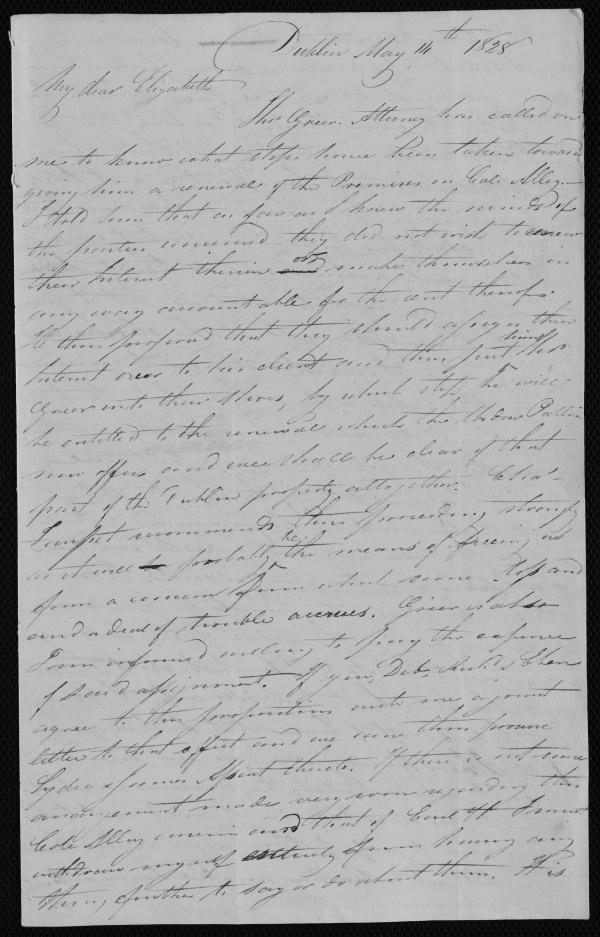 Dublin May 14th 1828
My dear Elizabeth
Thos Greer Attorney has called on
me to know what steps have been taken toward
giving him a renewal of the Premises in Cole Alley.
I told him that as far as I knew the minds of
the parties concerned they did not wish to renew
their Interest therein or make themselves in
any way accountable for the rent thereof.
He then proposed that they should assign their
Interest over to his client and thus put Thos
Greer into their Shoes, by which step he will
be entitled to the renewal which the Widow Pallin
now offers and we shall be clear of that
part of the Dublin property altogether. Chas
recommends this proceeding strongly
as it will probably be the means of freeing us
from a concern from which some loss and
and a deal of trouble accrues. Greer is also
I am informed willing to pay the expence
of said assignment. If you, Deb, & Eben
agree to this proposition write me a joint
letter to that effect and we can then procure
Lydia & James Assent thereto. If there is not some
arrangement made very soon regarding this
Cole Alley concern and that of Earl St I must
withdraw myself entirely from having any
thing further to say or do about them. It is